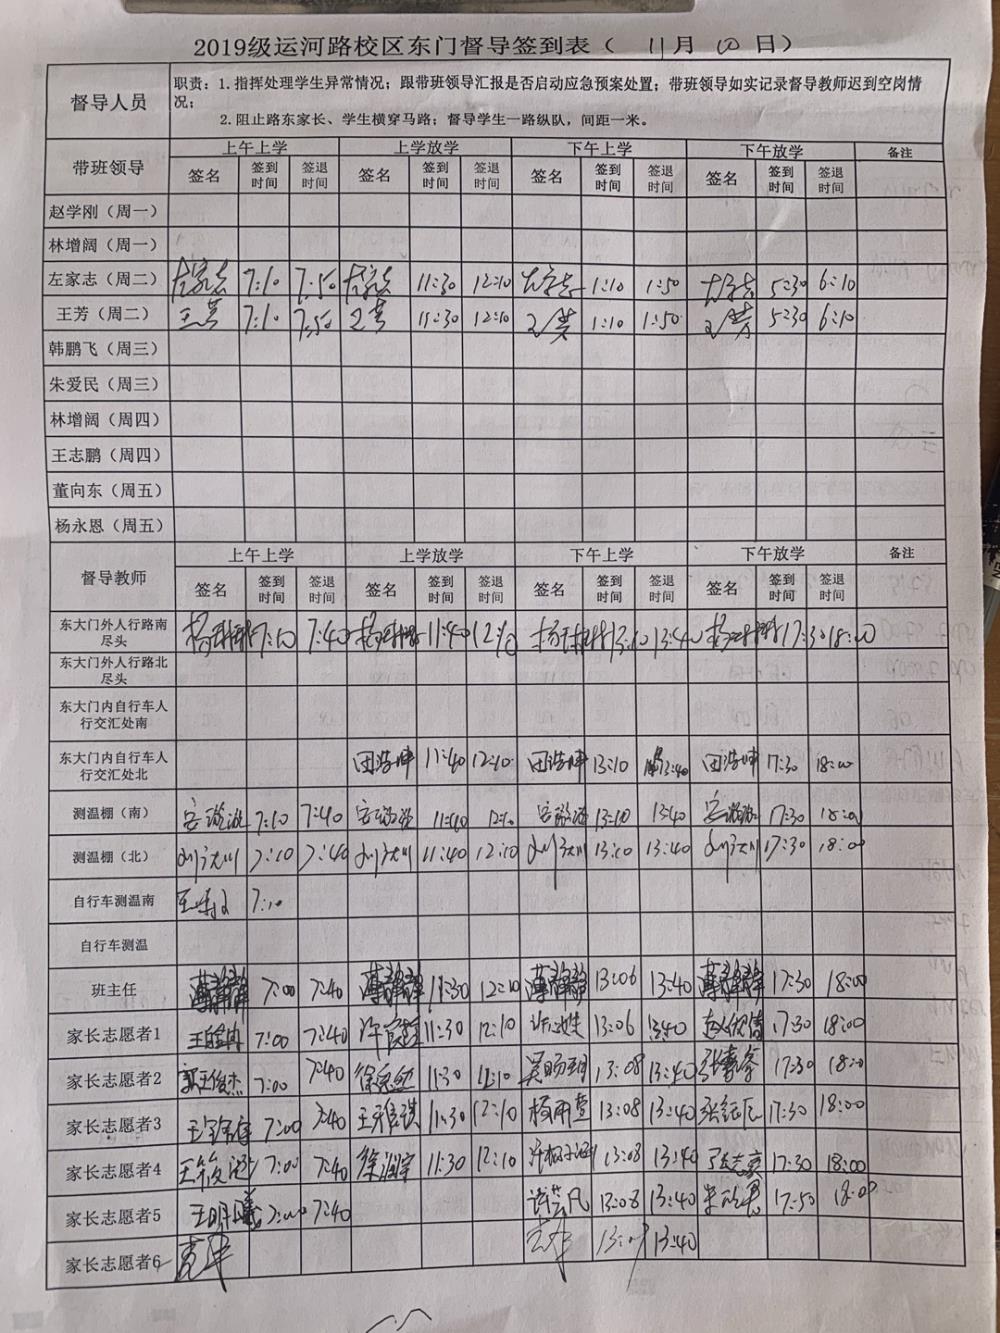 2019级运河路校区东门督导签到表（ 11月 10 日）
督导人员
职责：1.指挥处理学生异常情况；跟带班领导汇报是否启动应急预案处置；带班领导如实记录督导教师迟到空岗情
况；
2.阻止路东家长、学生横穿马路；督导学生一路纵队，间距一米。
带班领导 上午上学 上学放学 下午上学 下午放学 备注
签名 签到时间 签退时间 签名 签到时间 签退时间 签名 签到时间 签退时间 签名 签到时间 签退时间
赵学刚（周一）
林增阔（周一）
左家志（周二） 左家志 7:10 7:50 左家志 11:30 12:10 左家志 1:10 1:50 左家志 5:30 6:10
王芳（周二） 王芳 7:10 7:50 王芳 11:30 12:10 王芳 1:10 1:50 王芳 5:30 6:10
韩鹏飞（周三）
朱爱民（周三）
林增阔（周四）
王志鹏（周四）
董向东（周五）
杨永恩（周五）
督导教师 上午上学 上学放学 下午上学 下午放学 备注
签名 签到时间 签退时间 签名 签到时间 签退时间 签名 签到时间 签退时间 签名 签到时间 签退时间
东大门外人行路南
尽头 7:10 7:40 11:40 12:10 13:10 13:40 17:30 18:00
东大门外人行路北
尽头
东大门内自行车人
行交汇处南
东大门内自行车人
行交汇处北 田浩坤 11:40 12:10 田浩坤 13:10 13:40 田浩坤 17:30 18:00
测温棚（南） 7:10 7:40 11:40 12:10 13:10 13:40 17:30 18:00
测温棚（北） 7:10 7:40 11:40 12:10 13:10 13:40 17:30 18:00
自行车测温南 7:10
自行车测温
班主任 7:00 7:40 11:30 12:10 13:06 13:40 17:30 18:00
家长志愿者1 7:00 7:40 11:30 12:10 13:06 13:40 17:30 18:00
家长志愿者2 郭王俊杰 7:00 7:40 11:30 13:08 13:40 17:30 18:00
家长志愿者3 7:00 7:40 11:30 12:10 杨雨萱 13:08 13:40 17:30 18:00
家长志愿者4 7:00 7:40 11:30 12:10 13:08 13:40 17:30 18:00
家长志愿者5 7:00 7:40 13:08 13:40 17:50 18:00
家长志愿者6 13:40